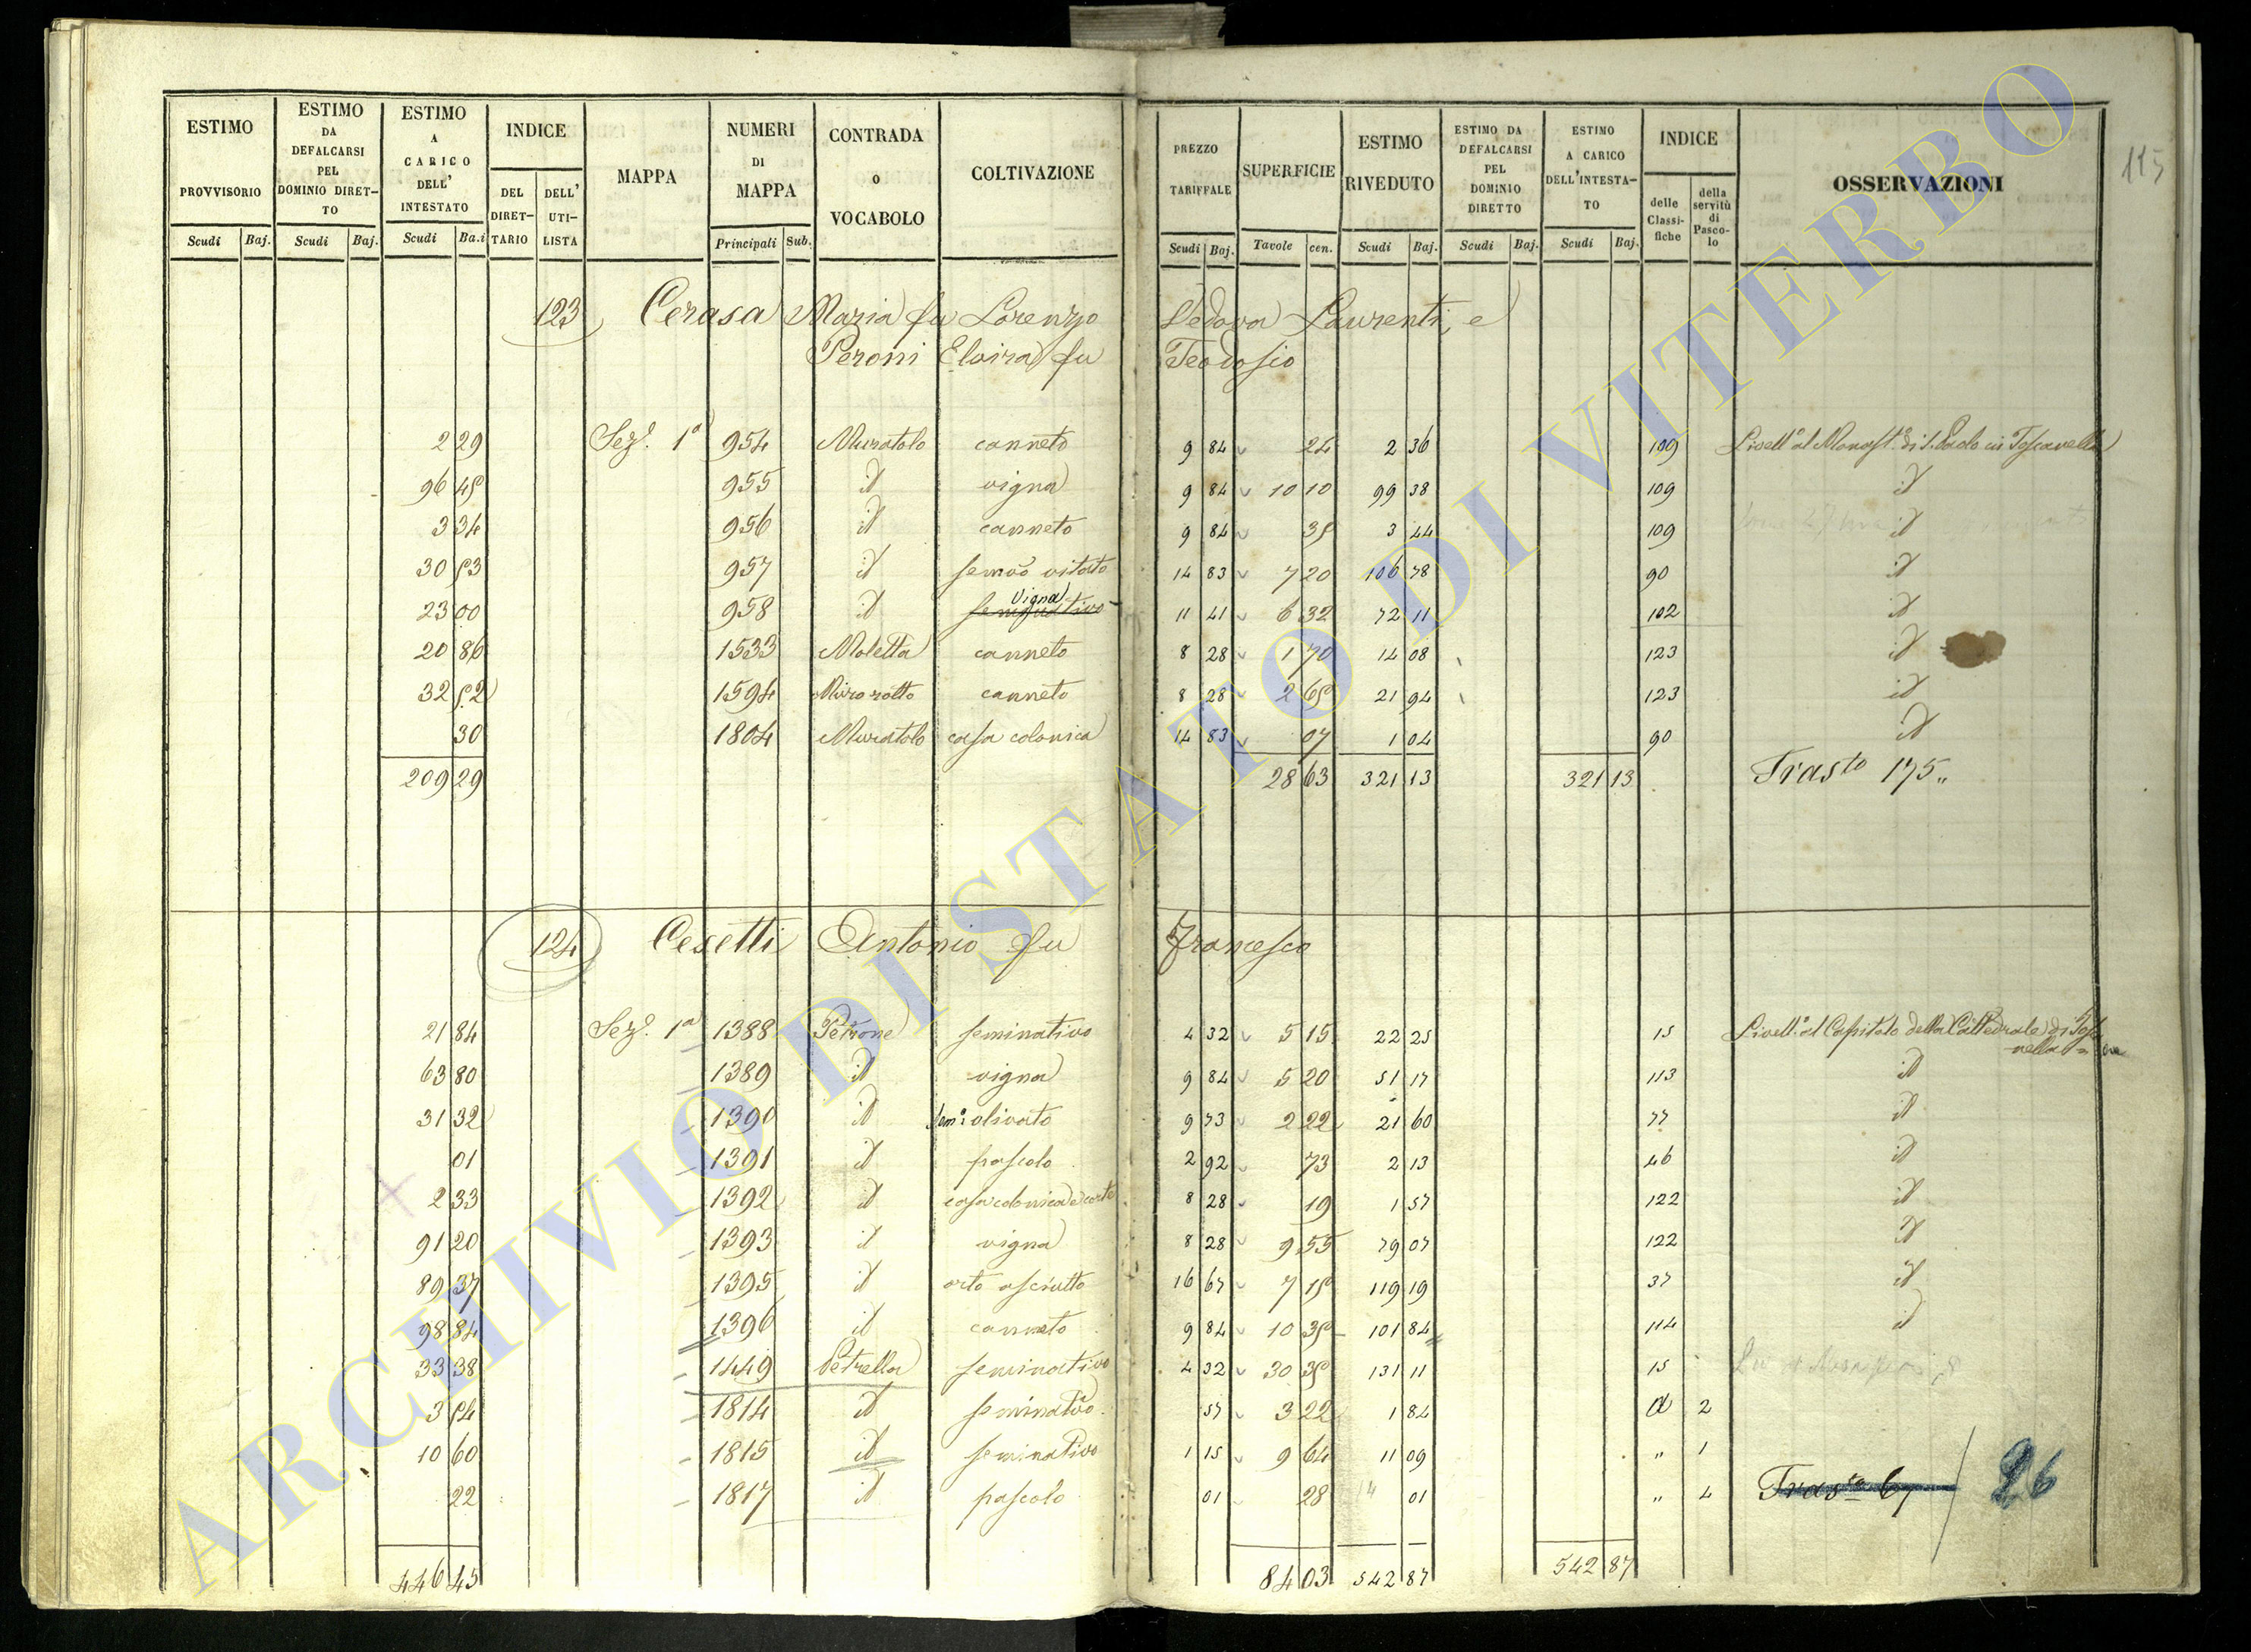 ESTIMO PROVVISORIO | ESTIMO DA DEFALCARSI PEL DOMINIO DIRETTO | ESTIMO A CARICO DELL' INTESTATO | INDICE DEL DIRETTARIO | DELL' UTILISTA | MAPPA | NUMERI DI MAPPA | CONTRADA o VOCABOLO | COLTIVAZIONE | PREZZO TARIFFALE | SUPERFICIE | ESTIMO RIVEDUTO | ESTIMO DA DEFALCARSI PEL DOMINIO DIRETTO | ESTIMO A CARICO DELL'INTESTATO | INDICE delle Classifiche | della servitù di Pascolo | OSSERVAZIONI | 115
Scudi | Baj. | Scudi | Baj. | Scudi | Ba.i | Principali | Sub. | Scudi | Baj. | Tavole | cen. | Scudi | Baj. | Scudi | Baj. | Scudi | Baj.
123 Cerasa Maria fu Lorenzo Vedova Laurenti, e
Peroni Elvira fu Teodosio
2 29 | Sez.e 1a | 954 | Muratolo | canneto | 9 84 | 24 | 2 36 | 109 | Livell.o al Monast.o di S. Paolo in Toscanella
96 45 | 955 | id | vigna | 9 84 | 10 10 | 99 38 | 109 | id
3 34 | 956 | id | canneto | 9 84 | 35 | 3 44 | 109 | id
30 53 | 957 | id | semvo vitato | 14 83 | 7 20 | 106 78 | 90 | id
23 00 | 958 | id | seminativo Vigna | 11 41 | 6 32 | 72 11 | 102 | id
20 86 | 1533 | Moletta | canneto | 8 28 | 1 70 | 14 08 | 123 | id
32 52 | 1594 | Muro rotto | canneto | 8 28 | 2 65 | 21 94 | 123 | id
30 | 1804 | Muratolo | casa colonica | 14 83 | 07 | 1 04 | 90 | id
209 29 | 28 63 | 321 13 | 321 13 | Trasto 175"
124 Cesetti Antonio fu Francesco
21 84 | Sez.e 1a | 1388 | Petrone | seminativo | 4 32 | 5 15 | 22 25 | 15 | Livell.o al Capitolo della Cattedrale di Tosca
nella
63 80 | 1389 | id | vigna | 9 84 | 5 20 | 51 17 | 113 | id
31 32 | 1390 | id | sem.o olivato | 9 73 | 2 22 | 21 60 | 77 | id
01 | 1391 | id | pascolo | 2 92 | 73 | 2 13 | 46 | id
2 33 | 1392 | id | casa colonica e corte | 8 28 | 19 | 1 57 | 122 | id
91 20 | 1393 | id | vigna | 8 28 | 9 55 | 79 07 | 122 | id
89 37 | 1395 | id | orto asciutto | 16 67 | 7 15 | 119 19 | 37 | id
98 84 | 1396 | id | canneto | 9 84 | 10 35 | 101 84 | 114 | id
33 38 | 1449 | Petrella | seminativo | 4 32 | 30 35 | 131 11 | 15
3 54 | 1814 | id | seminativo | 57 | 3 22 | 1 84 | a | 2
10 60 | 1815 | id | seminativo | 1 15 | 9 64 | 11 09 | " | 1
22 | 1817 | id | pascolo | 01 | 28 | 14 | 01 | " | 4 | Trasto 67 / 26
446 45 | 84 03 | 542 87 | 542 87
ARCHIVIO DI STATO DI VITERBO